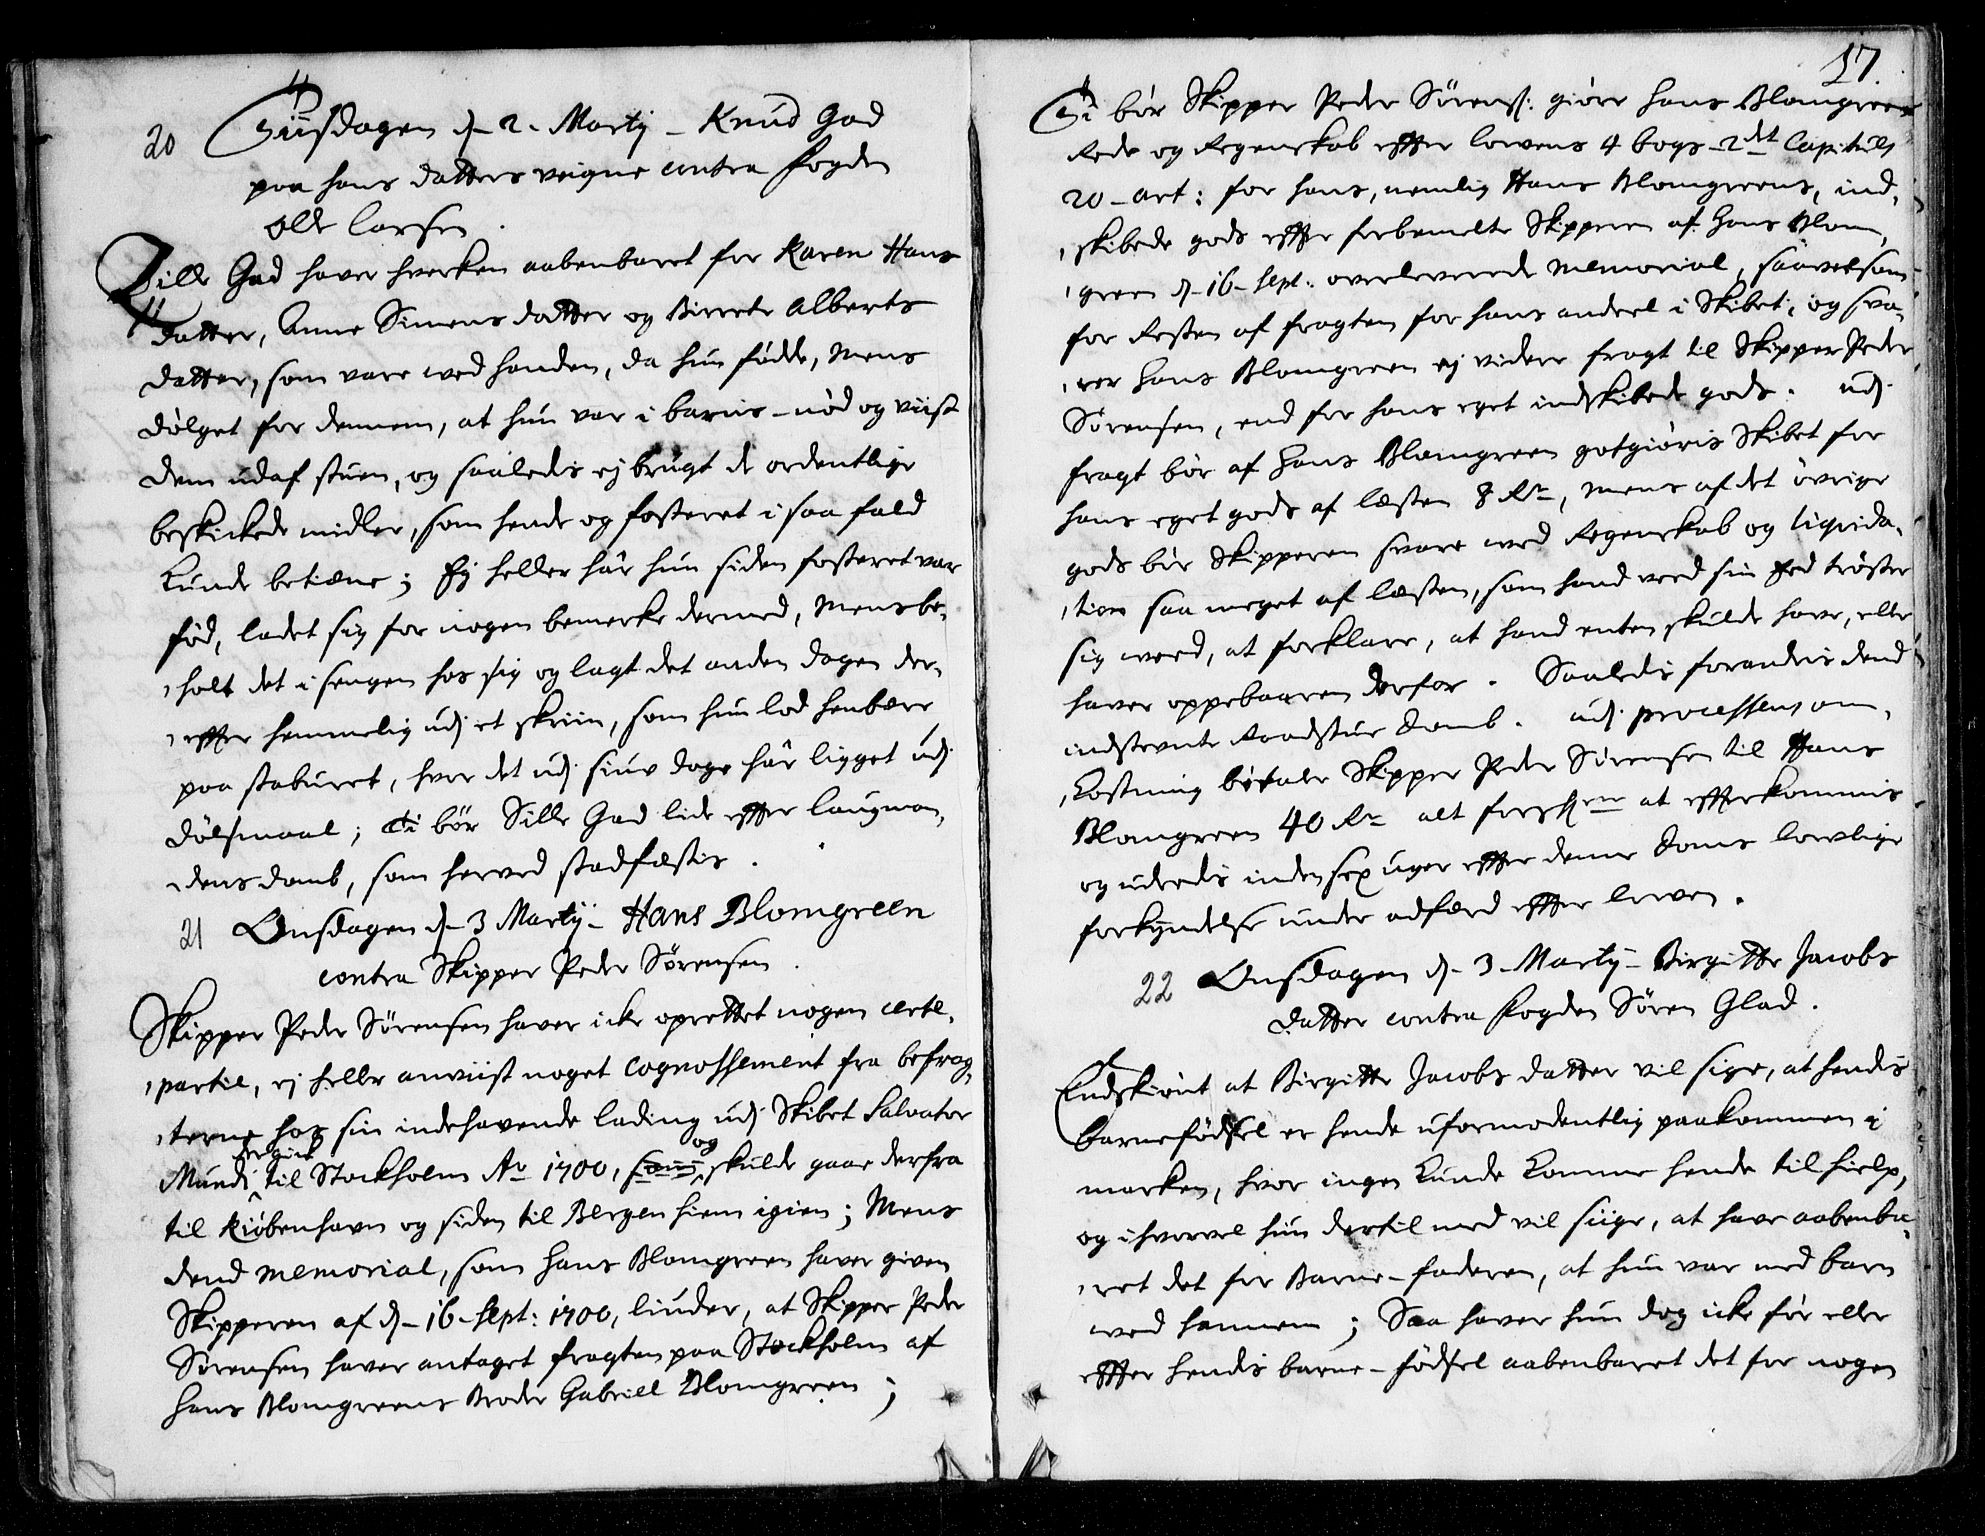 20 Tiisdagen d. 2. Martij – Knud Gad
paa hans datters veigne contra fogden
Olle Larsen.
Zille Gad haver hverken aabenbaret for Karen Hans
datter, Anne Simens datter og Birrete Alberts
datter, som vare ved haanden, da hun födde, Mens
dölget for dennem, at hun var i barns-nöd og viist
dem ud af stuen, og saaledis ej brugt de ordentlige
beskickede midler, som hende og fosteret i saa fald
kunde betiene; Ej heller här hun siden fosteret var
föd, ladet sig for nogen bemerke dermed, Mens be,
,holt det i sengen hos sig og lagt det anden dagen der,
,effter hemmelig udj et skriin, som hun lod henbære
paa staburet, hvor det udj siuv dage här ligget udj
dölsmaal; Ti bör Sille Gad lide effter laugman,
,dens domb, som herved stadfæstis.
21 Onsdagen d. 3 Martij – Hans Blomgreen
contra Skipper Peder Sörensen.
Skipper Peder Sörensen haver icke oprettet nogen certe,
,partie, ej heller anviist noget cognossement fra befrag,
,terne hos sin indehavende lading udj Skibet Salvator
Mundi til Stockholm Ao 1700, og skulde gaae derfra
til Kiöbenhavn og siden til Bergen hiem igien; Mens
dend memorial, som Hans Blomgreen haver given
Skipperen af d. 16 Sept: 1700, liuder, at Skipper Peder
Sörensen haver antaget fragten paa Stockholm af
Hans Blomgreens Broder Gabriell Blomgreen;
17.
Ti bör Skipper Peder Sörens: giöre Hans Blomgreen
Rede og Regenskab effter lovens 4 bogs 2det Capituls
20 – art: for hans, nemlig Hans Blomgreens, ind,
,skibede gods effter forbemelte Skipperen af Hans Blom,
,green d. 16 Sept: overleverede Memorial, saavelsom
for Resten af fragten for hans andeel i Skibet; og sva,
,rer Hans Blomgreen ej videre fragt til Skipper Peder
Sörensen, end for hans eget indskibede gods. udj
fragt bör af Hans Blomgreen gotgiöris Skibet for
hans eget gods af læsten 8 Rdr, Mens af det övrige
gods bör Skipperen svare med Regenskab og liqvida,
,tion saa meget af læsten, som hand ved sin Eed tröster
sig ved, at forklare, at hand enten skulde have, eller
haver oppebaaren derfor. Saaledis forandris dend
indstevnte Raadstue domb. udj processens om,
,kostning betaler Skipper Peder Sörensen til Hans
Blomgreen 40 Rdr alt at effterkommis
og uderedis inden sex uger effter denne doms lovlige
forkyndelse under adfærd effter loven.
22 Onsdagen d. 3 Martij – Birgitte Jacobs
datter contra fogden Sören Glad.
Endskiönt at Birgitte Jacobs datter vil sige, at hendis
barnefödsel er hende uformodentlig paakommen i
marken, hvor ingen kunde komme hende til hielp,
og i hvorvel hun dertil med vil siige, at have aabenba,
,ret det for Barne-faderen, at hun var med barn
ved hannem; Saa haver hun dog icke för eller
effter hendis barne-födsel aabenbaret det for nogen